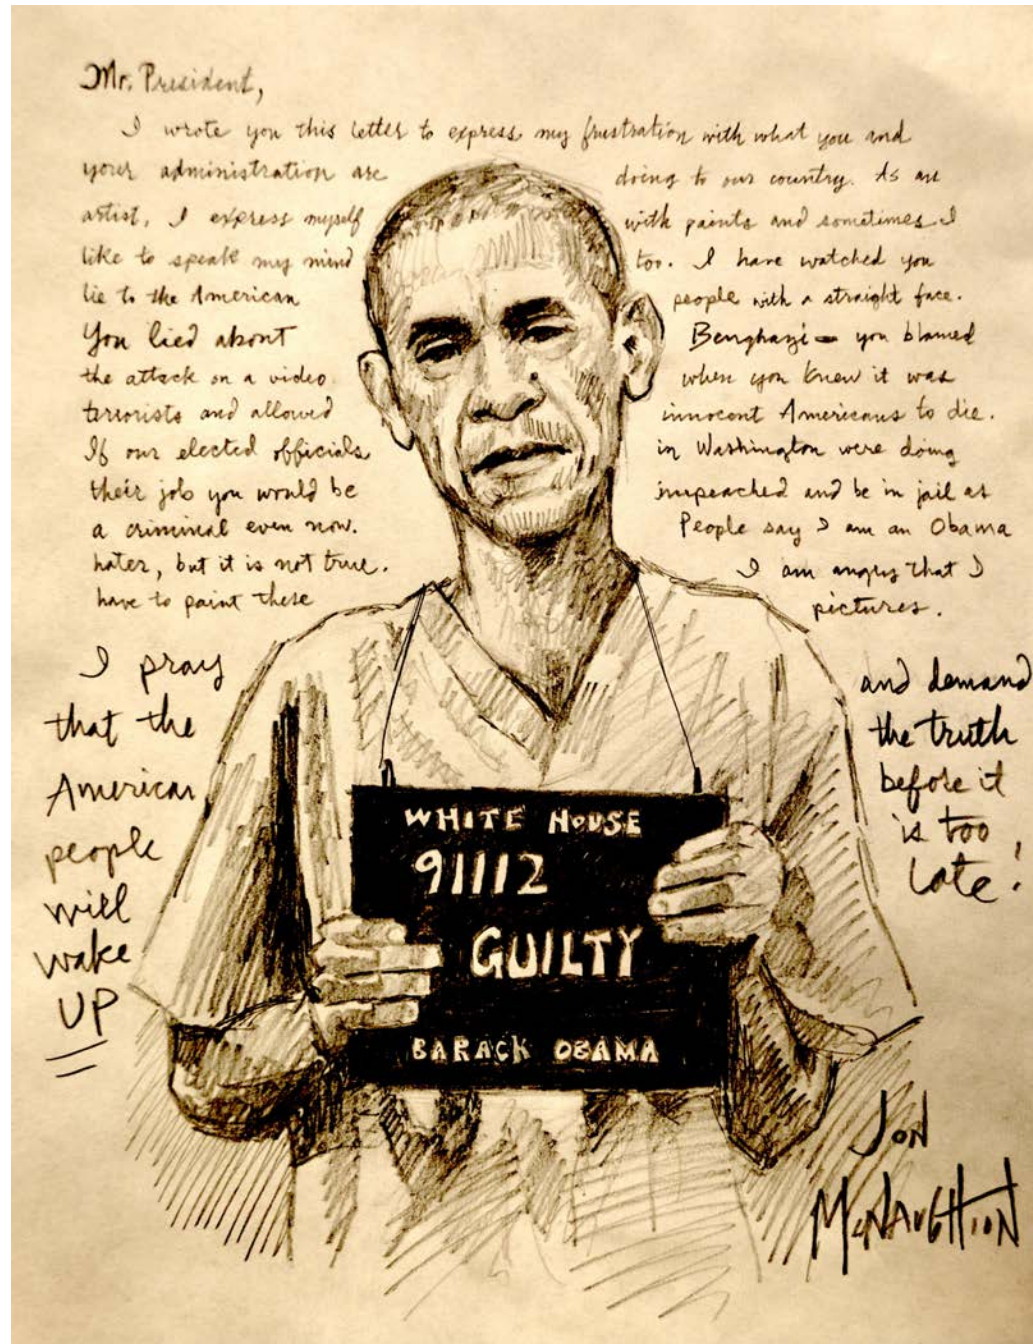 Mr. President,
I wrote you this letter to express my frustration with what you and
your administration are doing to our country. As an
artist, I express myself with paints and sometimes I
like to speak my mind too. I have watched you
lie to the American people with a straight face.
You lied about Benghazi - you blamed
the attack on a video when you knew it was
terrorists and allowed innocent Americans to die.
If our elected officials in Washington were doing
their job you would be impeached and be in jail as
a criminal even now. People say I am an Obama
hater, but it is not true. I am angry that I
have to paint these pictures.
I pray and demand
that the the truth
American before it
people is too
will late!
wake
UP
WHITE HOUSE
91112
GUILTY
BARACK OBAMA
JON
McNAUGHTON